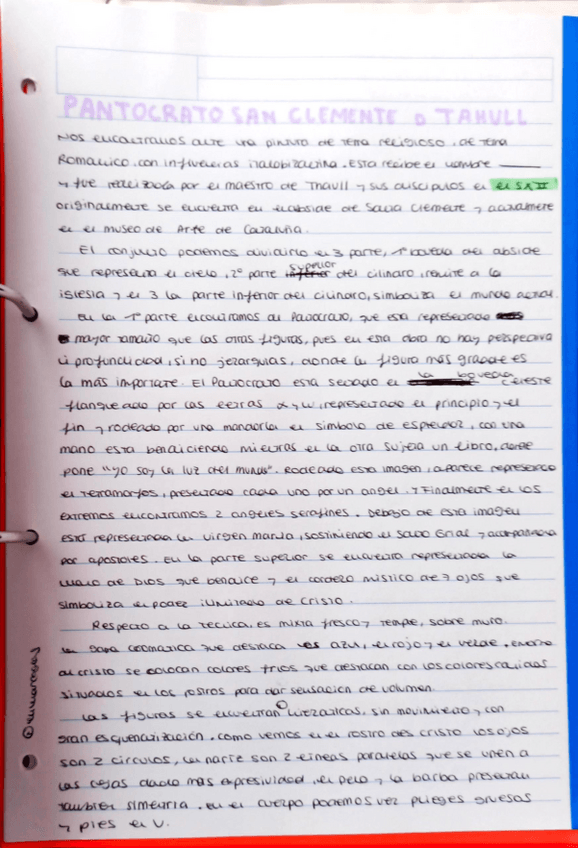 PANTOCRATO SAN CLEMENTE D TAHULL
Nos encontramos ante una pintura de tema religioso, de tema
Romanico, con influencias italobizantina. Esta recibe el nombre ———
y fue realizada por el maestro de Thaull y sus discipulos en el S.XII
originalmente se encuentra en el abside de Santa Clemente y actualmente
en el museo de Arte de Cataluña.
El conjunto podemos dividirlo en 3 parte, 1º boveda del abside
que representa el cielo, 2º parte superior del cilindro, remite a la
iglesia y el 3 la parte inferior del cilindro, simboliza el mundo actual.
En la 1º parte encontramos al Pantocrato, que esta representado
mayor tamaño que las otras figuras, pues en esta obra no hay perspectiva
ni profundidad, si no jerarquias, donde la figura más grande es
la más importante. El Pantocrato está sentado en la boveda celeste
flanqueado por las letras α y ω, representado el principio y el
fin y rodeado por una mandorla en simbolo de esplendor, con una
mano esta bendiciendo mientras en la otra sujeta un libro, donde
pone "yo soy la luz del mundo". Rodeado esta imagen, aparece representado
el Tetramorfos, presentado cada uno por un angel. Y Finalmente en los
extremos encontramos 2 angeles serafines. Debajo de esta imagen
está representada la virgen maria, sosteniendo el Santo Grial y acompañada
por apostoles. En la parte superior se encuentra representada la
mano de Dios que bendice y el cordero mistico de 7 ojos que
simboliza el poder iluminado de Cristo.
Respecto a la tecnica, es mixta fresco y temple, sobre muro.
La gama cromatica que destaca es azul, el rojo y el verde. Entorno
al cristo se colocan colores frios que destacan con los colores calidos
situados en los rostros para dar sensación de volumen.
Las figuras se encuentran hieraticas, sin movimiento y con
gran esquematización. Como vemos en el rostro del cristo los ojos
son 2 circulos, la nariz son 2 lineas paralelas que se unen a
las cejas dando más expresividad, el pelo y la barba presentan
tambien simetria. En el cuerpo podemos ver pliegues gruesos
y pies en V.